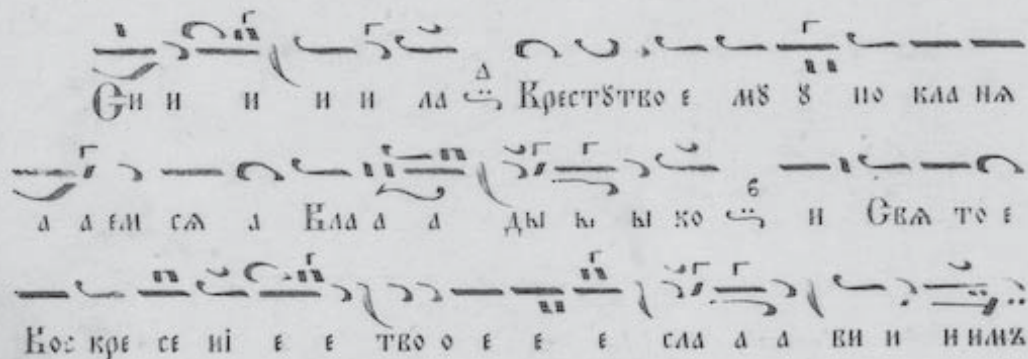 Си и и и и ла Δ Крестꙋтво е мꙋ ꙋ по кла нѧ
а а ем сѧ а Вла а а ды ы ы ко б и Свѧ то е
Вос кре се ні е е тво о е е е сла а а ви и и имъ